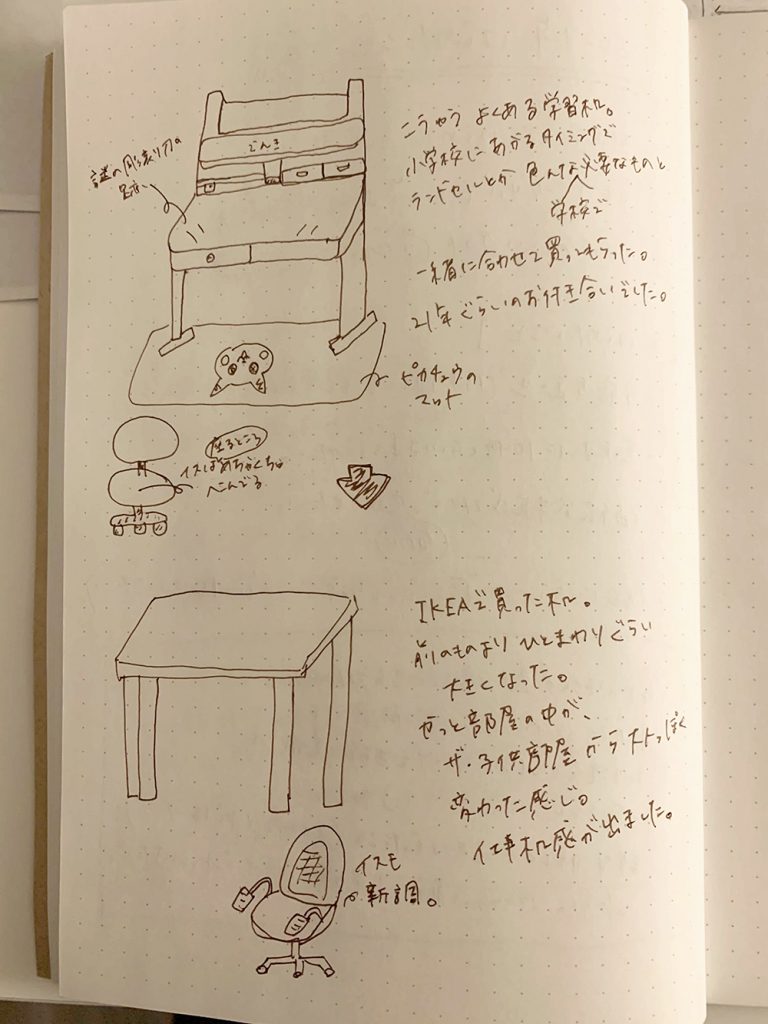 こうゆう よくある学習机。
小学校にあがるタイミングで
ランドセルとか 色んな必要なものと
学校で
一緒に合わせて買ってもらった。
21年ぐらいのお付き合いでした。
謎の彫刻刀の
跡
でんき
ピカチュウの
マット
座るところ
イスはめちゃくちゃ
へこんでる
IKEAで買った机。
前のものより ひとまわりぐらい
大きくなった。
やっと部屋の中が、
ザ・子供部屋 から大人っぽく
変わった感じ。
仕事机感が出ました。
イスも
新調。